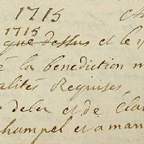 1715
1715
que dessus et le
à la benediction
alités Requises
de la et de
champel et a